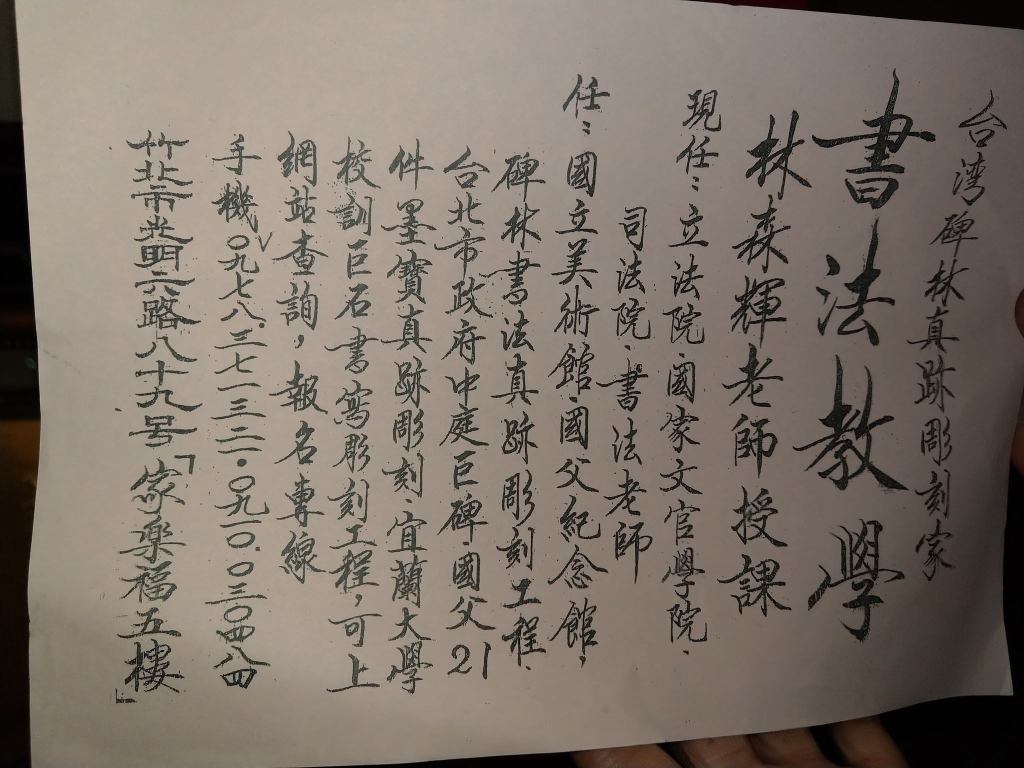 台湾碑林真跡彫刻家
書法教學
林森輝老師授課
現任：立法院、國家文官學院、
司法院、書法老師
任：國立美術館、國父紀念館、
碑林書法真跡彫刻工程、
台北市政府中庭巨碑國父21
件墨寶真跡彫刻、宜蘭大學
校訓巨石書寫彫刻工程，可上
網站查詢，報名專線
手機〇九七八.三七一三二一.〇九一〇.〇三〇四八四
竹北市光明六路八十九号「家楽福五樓」